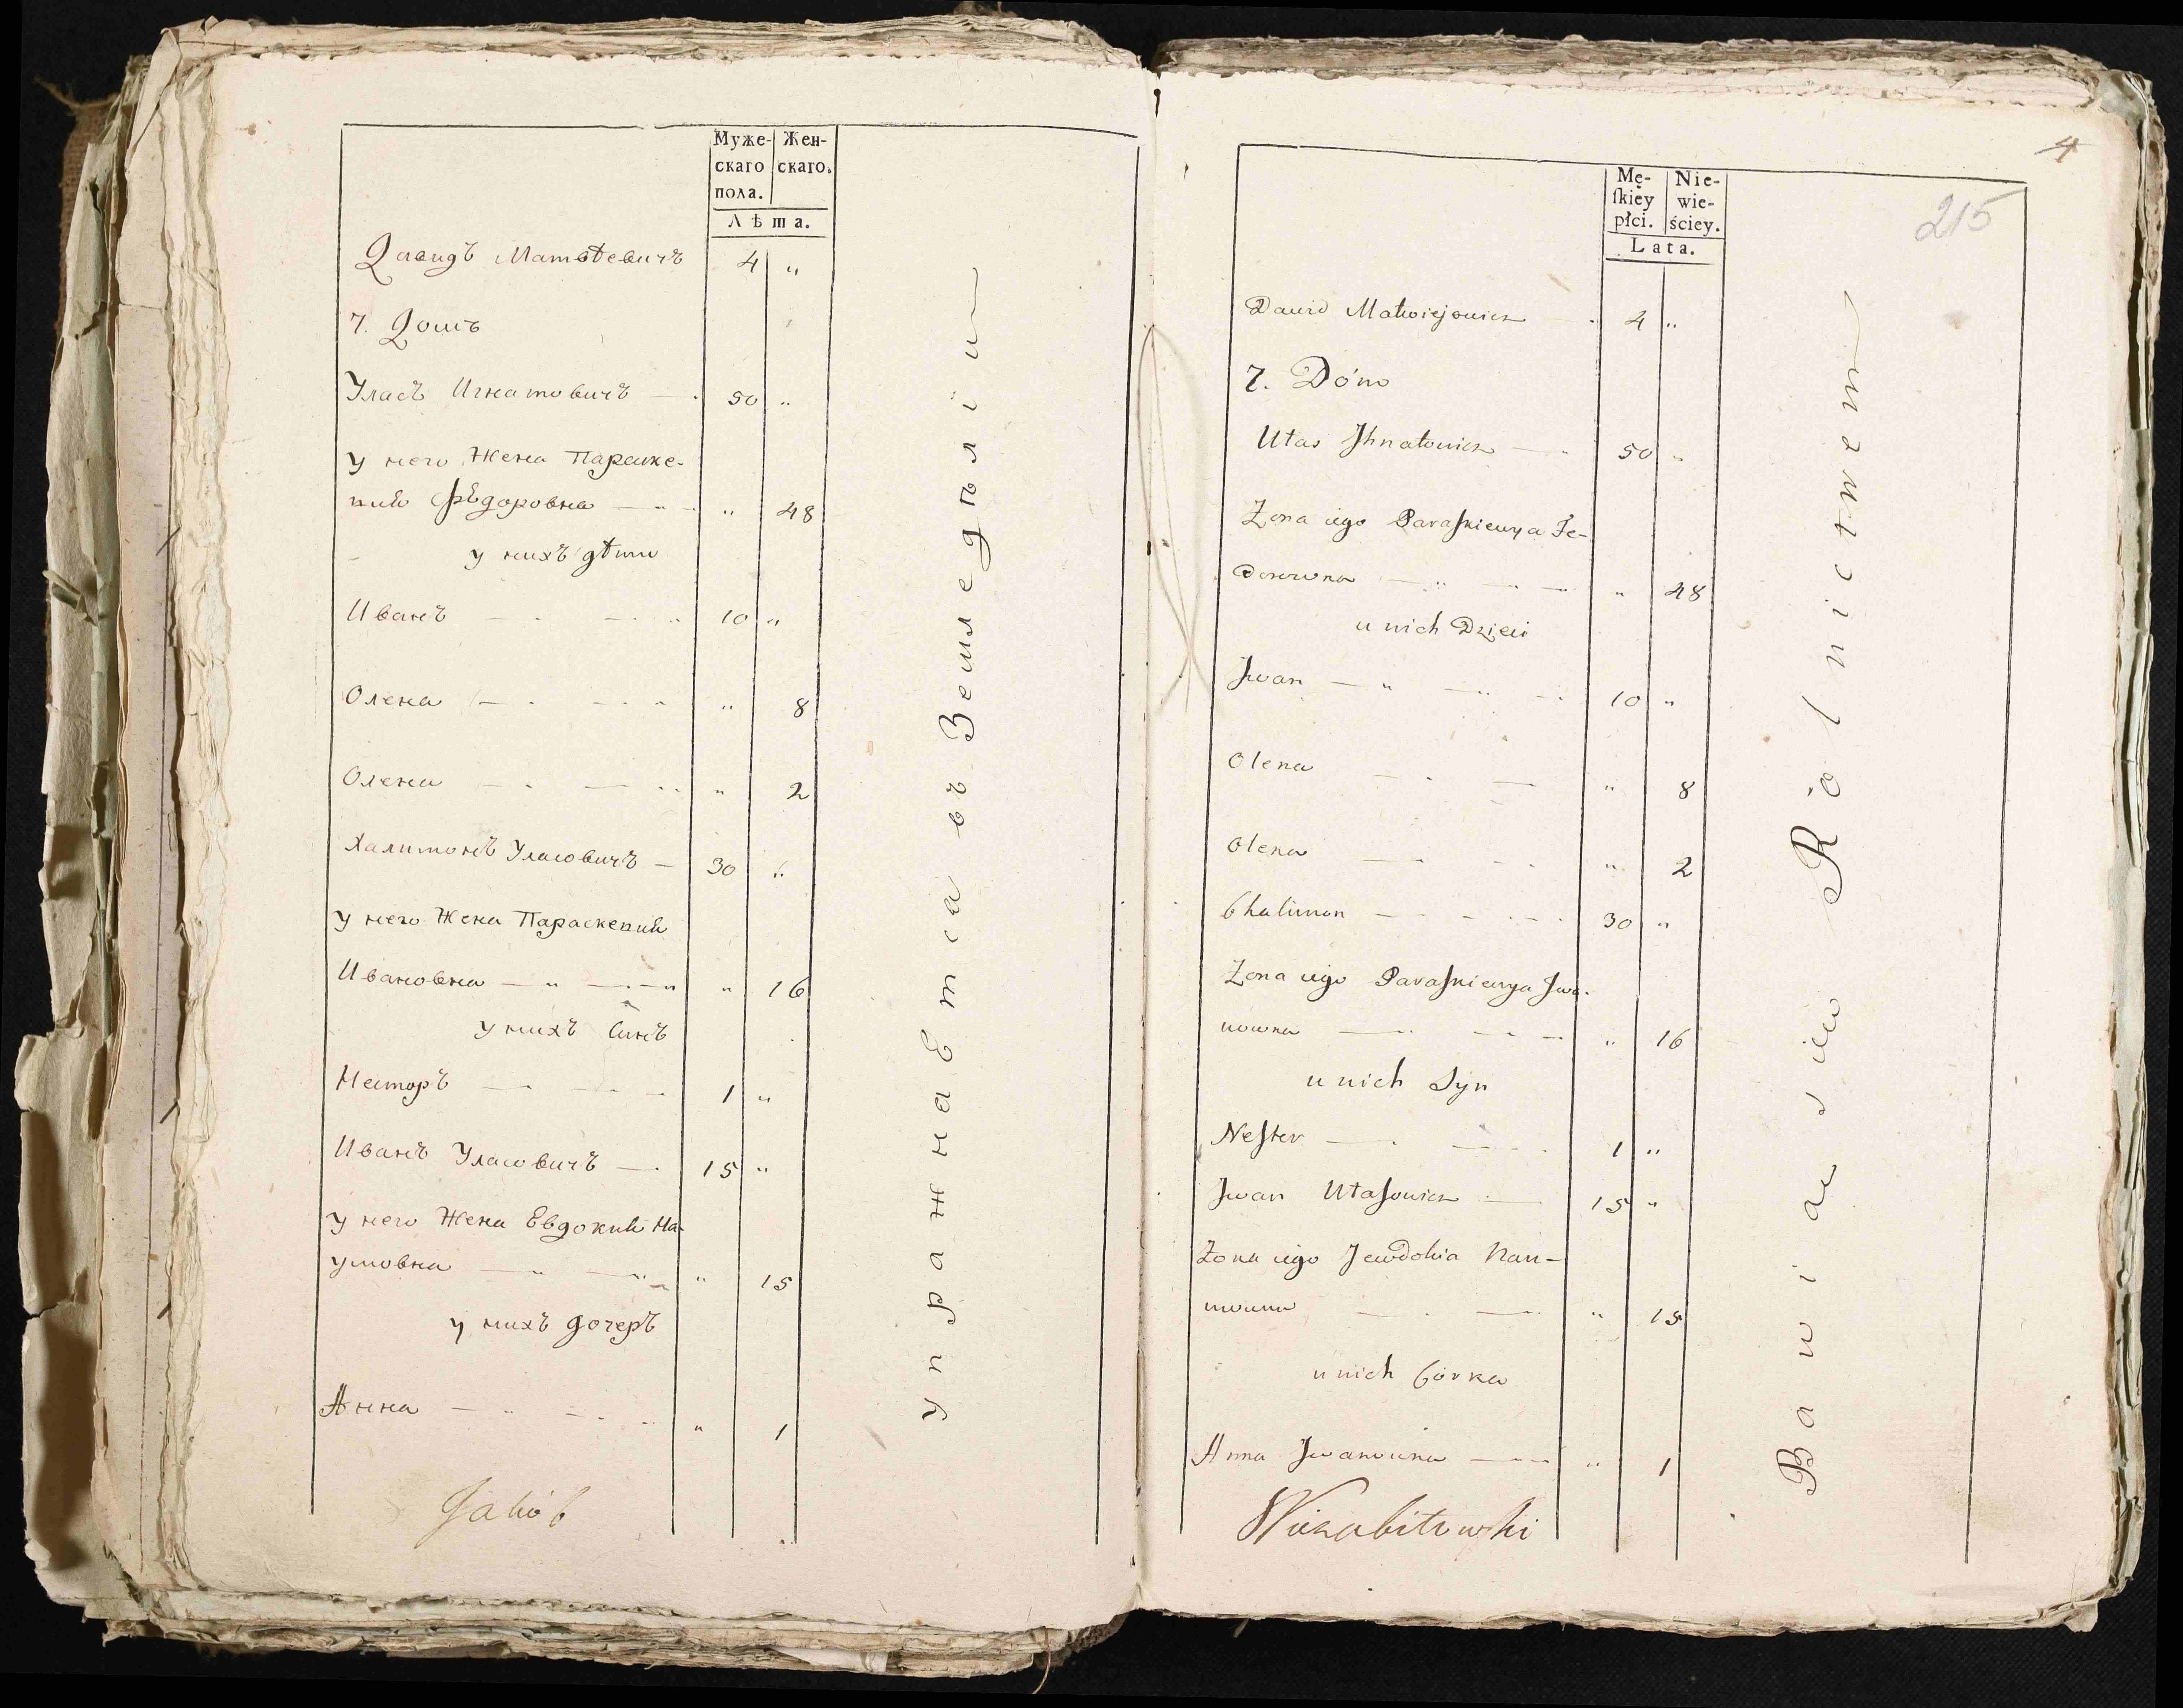 Муже-
скаго
пола.
Жен-
скаго.
Лѣта.
Давидъ Матвѣевичъ 4 "
7. Домъ
Уласъ Игнатовичъ — 50 "
у него Жена Параске-
вия Ѳедоровна — " 48
у нихъ дѣти
Иванъ — 10 "
Олена — " 8
Олена — " 2
Халимонъ Уласовичъ — 30 "
у него Жена Параскевия
Ивановна — " 16
у нихъ Синъ
Несторъ — 1 "
Иванъ Уласовичъ — 15 "
у него Жена Евдокия На-
умовна — " 15
у нихъ дочеръ
Анна — " 1
упражнаЕтса въ Земледѣліи
Jakób
4
215
Mę-
ſkiey
płci.
Nie-
wie-
ściey.
Lata.
Dawid Matwiejowicz 4 "
7. Dóm
Ułas Jhnatowicz — 50 "
Zona iego Paraſkiewya Fe-
dorowna — " 48
u nich Dzieci
Jwan — 10 "
Olena — " 8
Olena — " 2
Chalimon — 30 "
Zona iego Paraſkiewya Jwa-
nowna — " 16
u nich Syn
Neſter — 1 "
Jwan Ułaſowicz — 15 "
Zona iego Jewdokia Nau-
mowna — " 15
u nich Córka
Anna Jwanowna — " 1
Bawią się Rolnictwem